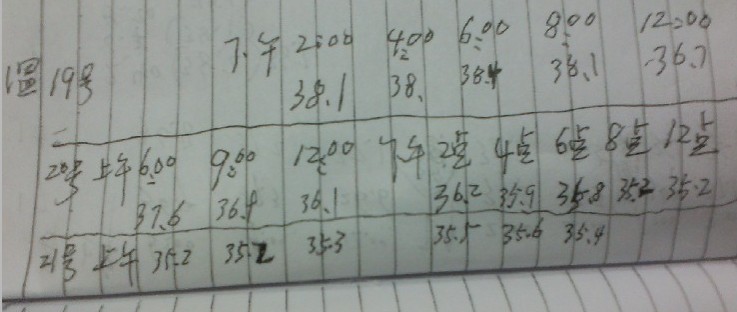 温 19号 下午 2:00 4:00 6:00 8:00 12:00
38.1 38. 38.4 38.1 36.7
20号 上午 6:00 9:00 12:00 下午 2点 4点 6点 8点 12点
37.6 36.9 36.1 36.2 35.9 36.8 35.2 35.2
21号 上午 35.2 35.2 35.3 35.5 35.6 35.4